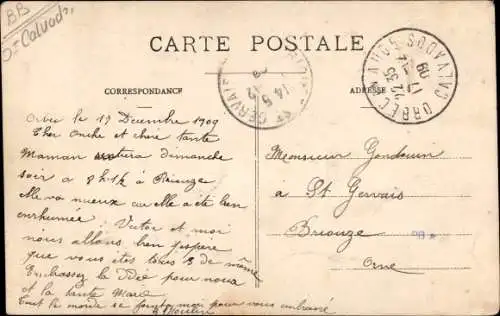 BB
Dt Calvados
CARTE POSTALE
CORRESPONDANCE
ADRESSE
ORBEC EN AUGE CALVADOS
22 35
17 12
09
ST GERVAIS
14 5
12
Orbec le 17 Décembre 1909
Cher Oncle et chère tante
Maman partira dimanche
soir a 8h½ à Briouze
Elle va mieux car elle a été bien
enrhumée. Victor et moi
nous allons bien j'espère
que vous êtes tous 3 de même
Embrassez la Dédé pour nous
et la tante Marie
Tout le monde se joint a moi pour vous embrasser
Monsieur Gondouin
a St Gervais
Briouze
Orne